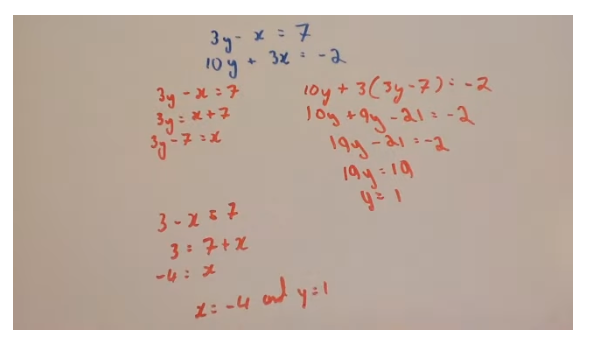 3y - x = 7
10y + 3x = -2
3y - x = 7
3y = x + 7
3y - 7 = x
10y + 3(3y - 7) = -2
10y + 9y - 21 = -2
19y - 21 = -2
19y = 19
y = 1
3 - x = 7
3 = 7 + x
-4 = x
x = -4 and y = 1